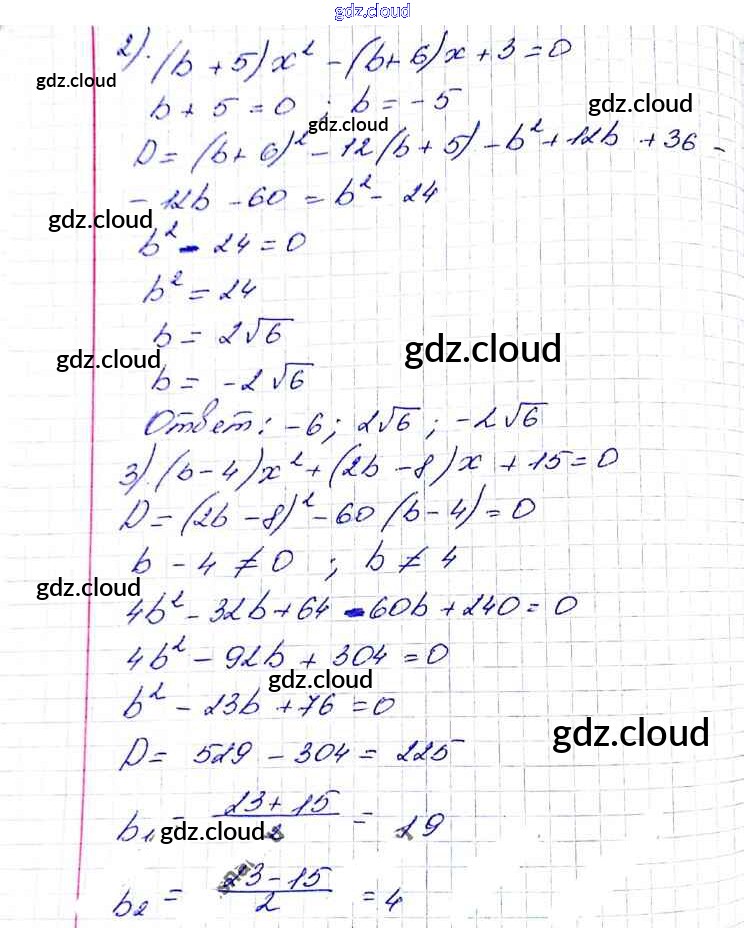 gdz.cloud
2). (b + 5)x² - (b + 6)x + 3 = 0
gdz.cloud
b + 5 = 0 ; b = -5
gdz.cloud
gdz.cloud
D = (b + 6)² - 12(b + 5) - b² + 12b + 36 -
- 12b - 60 = b² - 24
gdz.cloud
b² - 24 = 0
b² = 24
b = 2√6
gdz.cloud
gdz.cloud
b = -2√6
Ответ: -6; 2√6; -2√6
3). (b - 4)x² + (2b - 8)x + 15 = 0
D = (2b - 8)² - 60(b - 4) = 0
b - 4 ≠ 0 ; b ≠ 4
gdz.cloud
4b² - 32b + 64 - 60b + 240 = 0
4b² - 92b + 304 = 0
gdz.cloud
b² - 23b + 76 = 0
gdz.cloud
D = 529 - 304 = 225
b₁ = (23 + 15)/2 = 19
gdz.cloud
b₂ = (23 - 15)/2 = 4